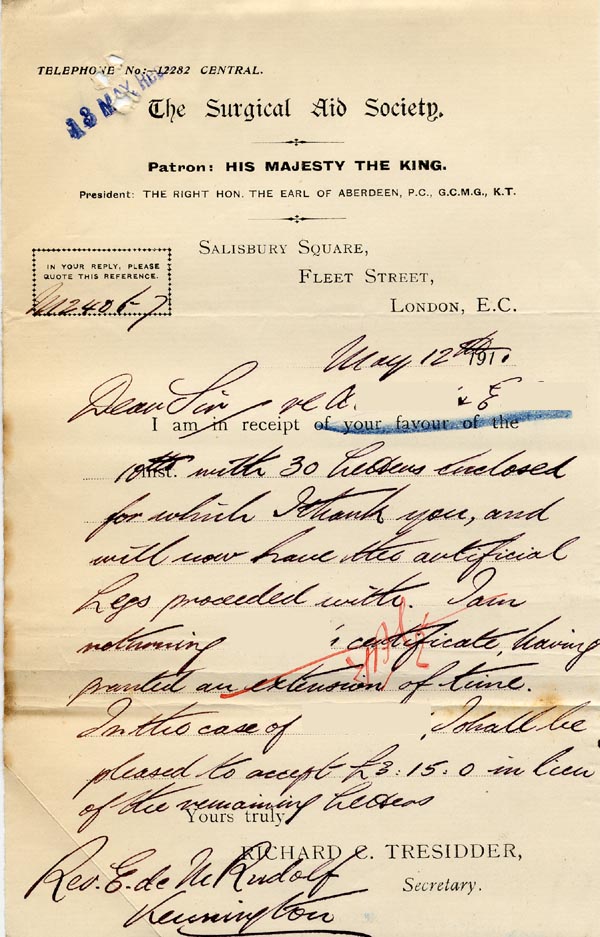 TELEPHONE No:—12282 CENTRAL.
13 MAY REC
The Surgical Aid Society.
Patron: HIS MAJESTY THE KING.
President: THE RIGHT HON. THE EARL OF ABERDEEN, P.C., G.C.M.G., K.T.
SALISBURY SQUARE,
FLEET STREET,
LONDON, E.C.
IN YOUR REPLY, PLEASE
QUOTE THIS REFERENCE.
M2406-7
May 12th 1910
Dear Sir re A. & E
I am in receipt of your favour of the
10th inst. with 30 Letters enclosed
for which I thank you, and
will now have the artificial
Legs proceeded with. I am
returning certificate, having
granted an extension of time.
In the case of I shall be
pleased to accept £3:15:0 in lieu
of the remaining Letters
Yours truly
RICHARD C. TRESIDDER,
Secretary.
Rev. E. de M Rudolf
Kennington